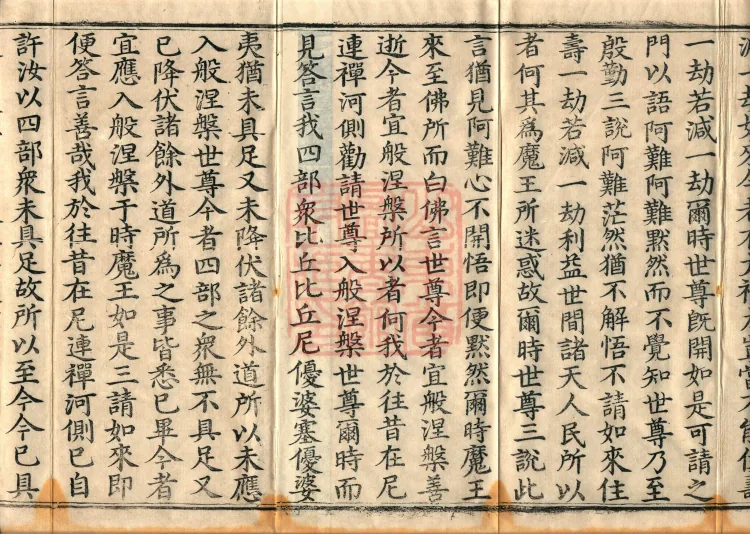 一劫若減一劫爾時世尊旣開如是可請之
門以語阿難阿難黙然而不覺知世尊乃至
殷勤三說阿難茫然猶不解悟不請如來住
壽一劫若減一劫利益世間諸天人民所以
者何其爲魔王所迷惑故爾時世尊三說此
言猶見阿難心不開悟即便黙然爾時魔王
來至佛所而白佛言世尊今者宜般涅槃善
逝今者宜般涅槃所以者何我於往昔在尼
連禪河側勸請世尊入般涅槃世尊爾時而
見答言我四部衆比丘比丘尼優婆塞優婆
夷猶未具足又未降伏諸餘外道所以未應
入般涅槃世尊今者四部之衆無不具足又
已降伏諸餘外道所爲之事皆悉已畢今者
宜應入般涅槃于時魔王如是三請如來即
便答言善哉我於往昔在尼連禪河側已自
許汝以四部衆未具足故所以至今今已具